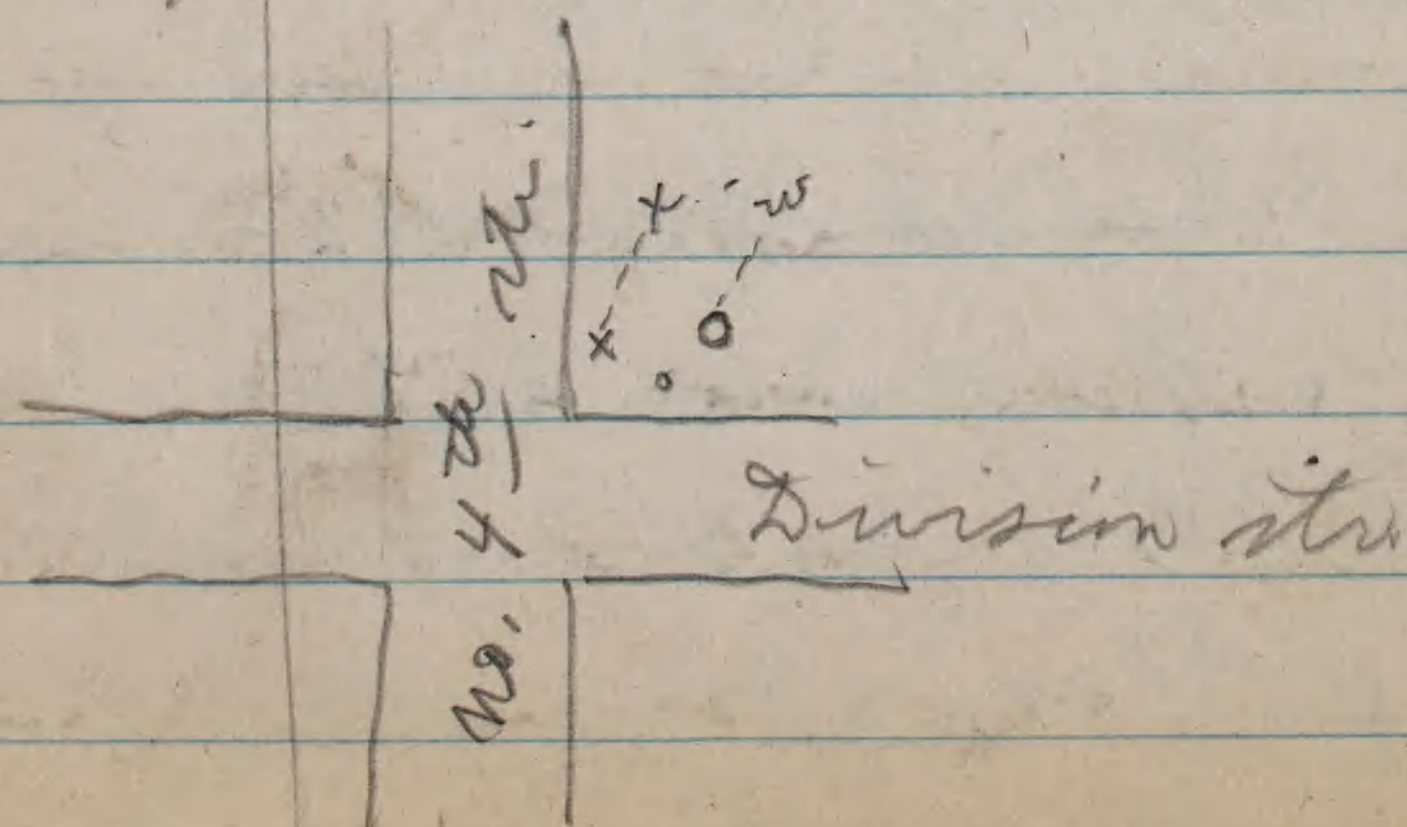 No. 4th str.
x w
x o
o
Division str.